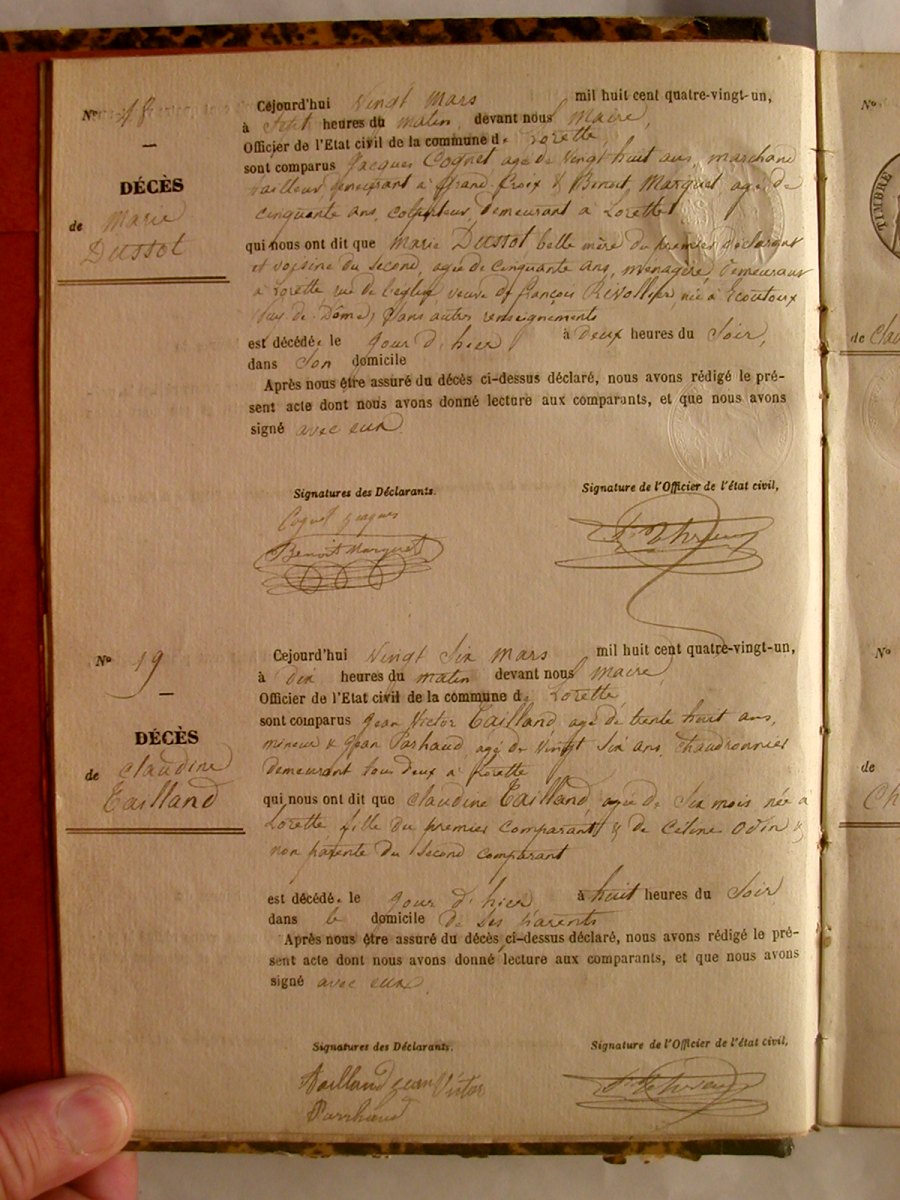 No 18
DÉCÈS
de Marie
Dussot
Cejourd'hui vingt mars mil huit cent quatre-vingt-un,
à sept heures du matin, devant nous Maire,
Officier de l'Etat civil de la commune de Lorette
sont comparus Jacques Cognet agé de vingt huit ans, marchand
tailleur demeurant à Grand Croix & Benoit Marquet, agé de
cinquante ans, colporteur, demeurant à Lorette
qui nous ont dit que Marie Dussot, belle mère du premier déclarant
et voisine du second, agée de cinquante ans, ménagère, demeurant
à Lorette rue de l'église, veuve de françois Revollier, née à
(Puy de Dôme) sans autres renseignements
est décédée le jour d'hier à deux heures du soir,
dans son domicile
Après nous être assuré du décès ci-dessus déclaré, nous avons rédigé le pré-
sent acte dont nous avons donné lecture aux comparants, et que nous avons
signé avec eux.
Signatures des Déclarants.
Signature de l'Officier de l'état civil,
Cognet Jacques
Benoit Marquet
No 19
DÉCÈS
de Claudine
Tailland
Cejourd'hui vingt six mars mil huit cent quatre-vingt-un,
à dix heures du matin devant nous Maire,
Officier de l'Etat civil de la commune de Lorette
sont comparus Jean Victor Tailland, agé de trente huit ans,
mineur & Jean agé de vingt six ans, chaudronnier
demeurant tous deux à Lorette
qui nous ont dit que Claudine Tailland, agée de six mois, née à
Lorette, fille du premier comparant & de Céline Odin &
non parente du second comparant
est décédée le jour d'hier, à huit heures du soir
dans le domicile de ses parents
Après nous être assuré du décès ci-dessus déclaré, nous avons rédigé le pré-
sent acte dont nous avons donné lecture aux comparants, et que nous avons
signé avec eux.
Signatures des Déclarants.
Signature de l'Officier de l'état civil,
Tailland Jean Victor
No
TIMBRE
de Clau
No
de
Ch